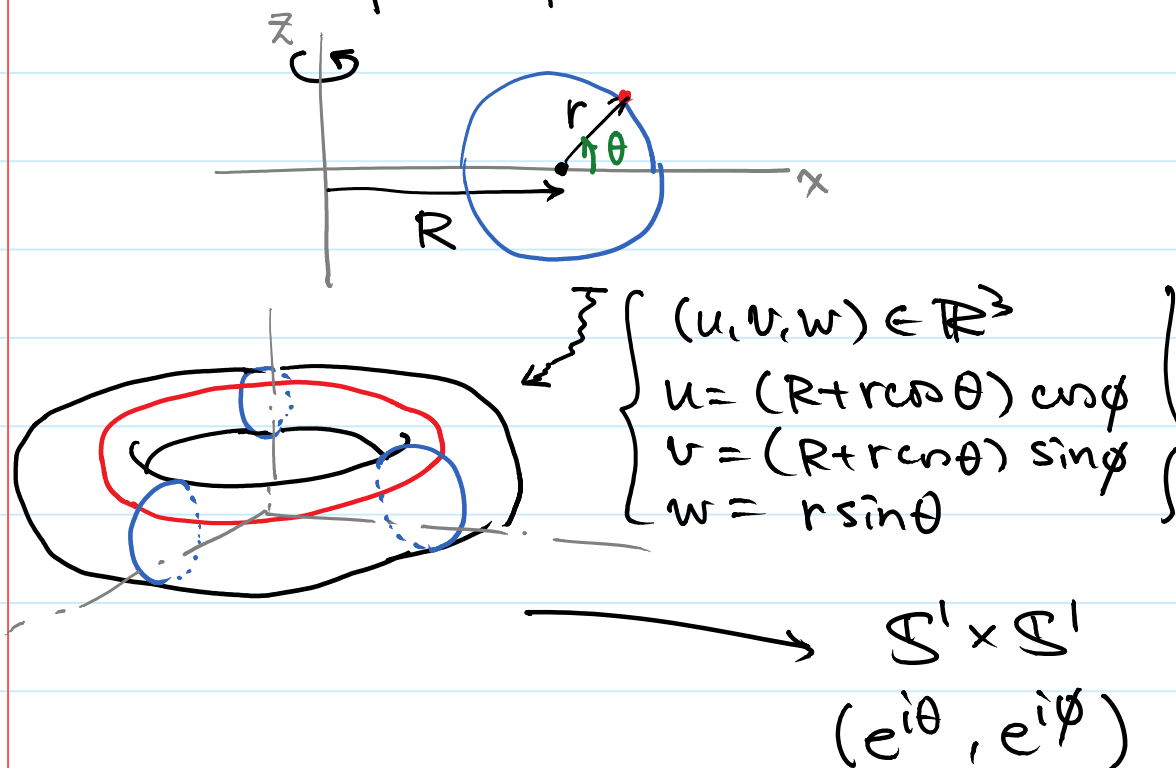 z
r
θ
x
R
(u,v,w) ∈ ℝ³
u = (R+rcosθ) cosϕ
v = (R+rcosθ) sinϕ
w = r sinθ
S¹ × S¹
(e^{iθ}, e^{iϕ})